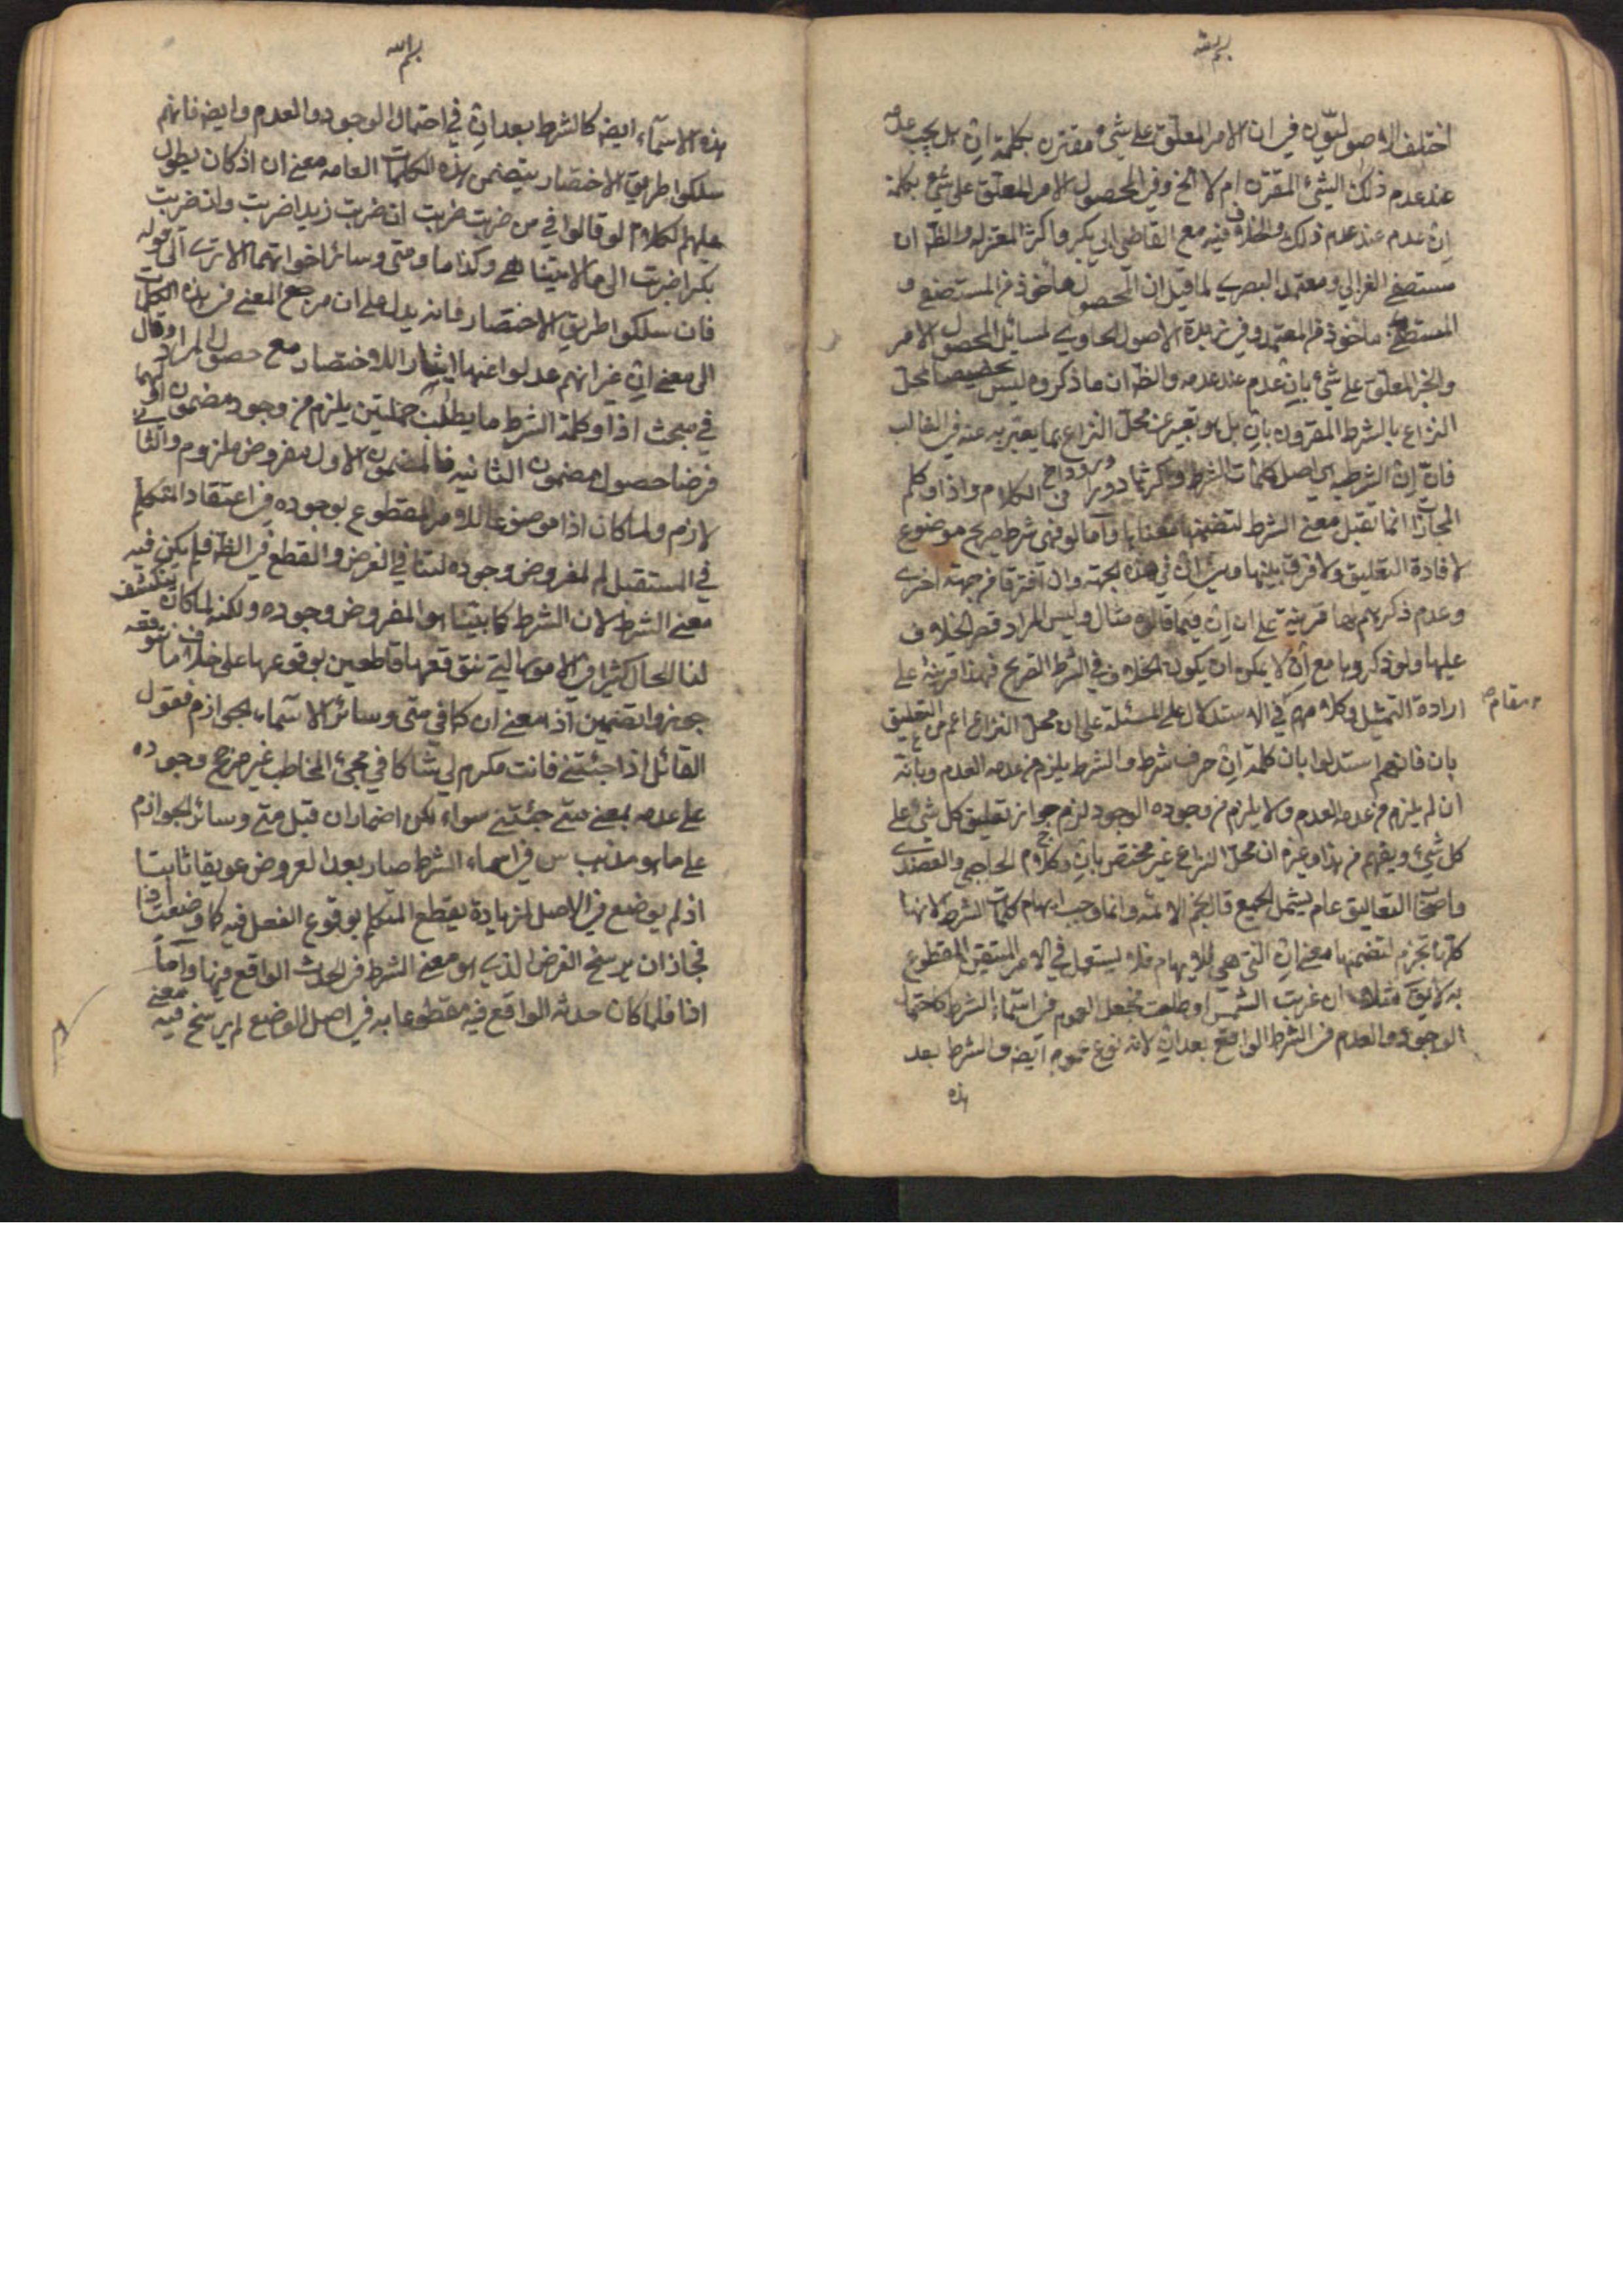 بسم الله
اختلف الاصوليون في ان الامر المعلق على شيء مقترن بكلمة ان هل يجب عدمه
عند عدم ذلك الشيء المقترن ام لا الخ وفي المحصول الامر المعلق على شيء بكلمة
ان عدم عند عدم ذلك والخلاف فيه مع القاضي ابي بكر واكثر المعتزله والظ ان
مستصفى الغزالي ومعتمد البصري لما قيل ان المحصول ماخوذ من المستصفى و
المستصفى ماخوذ من المعتمد وفي زبدة الاصول الحاوي لمسائل المحصول الامر
والخبر المعلق على شيء بان عدم عند عدمه والظ ان ما ذكروه ليس تخصيصا محل
النزاع بالشرط المقرون بان بل هو تعبير عن محل النزاع بما يعتبر به عنه في الغالب
فان ان الشرطيه هي اصل كلمات الشرط واكثرها دورا في الكلام واذا وكلم
المجازاة انما تقبل معنى الشرط لتضمنها معناها واما لو فهي شرط صريح موضوع
لافادة التعليق ولا فرق بينها وبين ان في هذه الجهة وان افترقا من جهة اخرى
وعدم ذكرهم لها قرينة على ان ان فيما قالوه مثال وليس المراد قصر الخلاف
عليها ولو ذكروها مع ان لا يمكن ان يكون الخلاف في الشرط الصريح فهذا قرينة على
ارادة التمثيل وكلامهم في الاستدلال على المسئلة على ان محل النزاع اعم من التعليق
مقام
بان فانهم استدلوا بان كلمة ان حرف شرط والشرط يلزم من عدمه العدم وبانه
ان لم يلزم من عدمه العدم ولا يلزم من وجوده الوجود لزم جواز تعليق كل شيء على
كل شيء ويفهم من هذا وغيره ان محل النزاع غير مختص بان وكلام الحاجبي والعضدي
واصحاب التعاليق عام يشمل الجميع قال نجم الائمه وانما وجب ابهام كلمات الشرط لانها
كلها تجزم لتضمنها معنى ان التي هي للابهام فلا يستعمل في الامر المتيقن المقطوع
به لا يق مثلا ان غربت الشمس او طلعت فجعل العموم في اسماء الشرط كاحتمال
الوجود والعدم في الشرط الواقع بعد ان لانه نوع عموم ايض والشرط بعد
هذه
بسم الله
هذه الاسماء ايض كالشرط بعد ان في احتمال الوجود والعدم وايض فانهم
سلكوا طريق الاختصار بتضمن هذه الكلمات العامه معنى ان اذ كان يطول
عليهم الكلام لو قالوا في من ضربت ضربت ان ضربت زيدا ضربت وان ضربت
بكرا ضربت الى ما لا يتناهى وكذا ما ومتى وسائر اخواتهما الا ترى الى قوله
فان سلكوا طريق الاختصار فانه يدل على ان مرجع المعنى في هذه الكلمات
الى معنى ان غير انهم عدلوا عنها ايثارا للاختصار مع حصول المراد وقال
في مبحث اذا وكلمة الشرط ما يطلب جملتين يلزم من وجود مضمون اولهما
فرضا حصول مضمون الثانيه فالمضمون الاول مفروض ملزوم والثاني
لازم ولما كان اذا موضوعا للامر المقطوع بوجوده في اعتقاد المتكلم
في المستقبل لم لمفروض وجوده لتنافي الفرض والقطع في الظ فلم يكن فيه
معنى الشرط لان الشرط كما بينا هو المفروض وجوده ولكنه لما كان ينكشف
لنا الحال كثيرا في الامور التي نتوقعها قاطعين بوقوعها على خلاف ما نتوقعه
جوزوا تضمين اذا معنى ان كما في متى وسائر الاسماء الجوازم فيقول
القائل اذا جئتني فانت مكرم لي شاكا في مجيء المخاطب غير مرجح وجوده
على عدمه بمعنى متى جئتني سواء لكن اضمار ان قبل متى وسائر الجوازم
على ما هو مذهب س في اسماء الشرط صار بعد العروض عريقا ثابتا
اذ لم يوضع في الاصل لزيادة يقطع المتكلم بوقوع الفعل فيه كما وضعت اذا
فجاز ان يرسخ الفرض الذي هو معنى الشرط في الحدث الواقع فيها واما
اذا فلما كان حدثه الواقع فيه مقطوعا به في اصل الوضع لم يرسخ فيه معنى